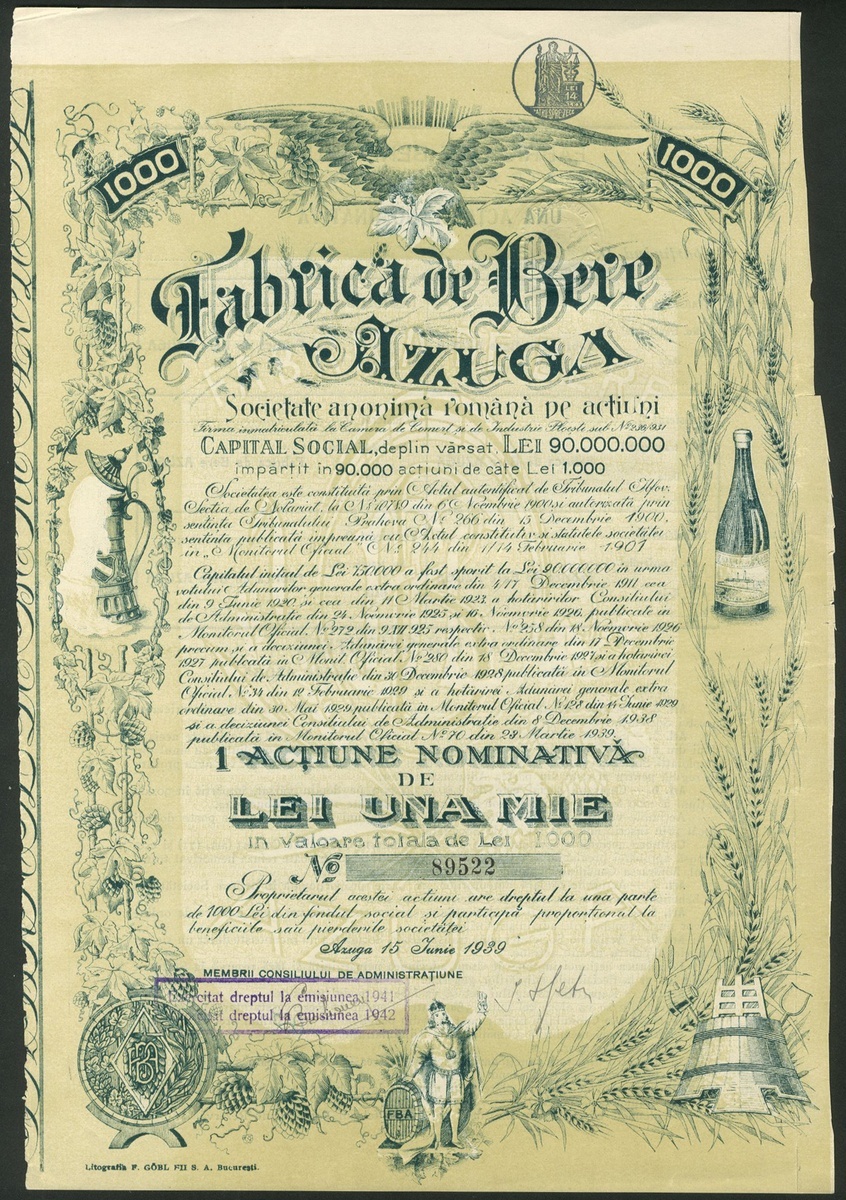 LEI
14
PATRUSPREZECE
1000
1000
Fabrica de Bere
AZUGA
Societate anonimă română pe acțiuni
Firma inmatriculată la Camera de Comerț și de Industrie Ploești sub No 236/931
CAPITAL SOCIAL, deplin vărsat, LEI 90.000.000
împărțit în 90.000 acțiuni de câte Lei 1.000
Societatea este constituită prin Actul autentificat de Tribunalul Ilfov,
Secția de Notariat, la No 10749 din 6 Noembrie 1900 și autorizată prin
sentința Tribunalului Prahova No 266 din 15 Decembrie 1900,
sentința publicată împreună cu Actul constitutiv și statutele societăței
in „Monitorul Oficial” No 244 din 1/14 Februarie 1901
Capitalul inițial de Lei 750000 a fost sporit la Lei 90.000.000 in urma
votului Adunărilor generale extraordinare din 4/17 Decembrie 1911 cea
din 9 Iunie 1920 și cea din 11 Martie 1923, a hotărîrilor Consiliului
de Administrație din 24 Noemvrie 1925 și 16 Noemvrie 1926, publicate in
Monitorul Oficial No 272 din 9 XII 925 respectiv No 258 din 18 Noemvrie 1926
precum și a deciziunei Adunărei generale extraordinare din 17 Decembrie
1927 publicată in Monit Oficial No 280 din 18 Decembrie 1927 și a hotărirei
Consiliului de Administrație din 30 Decembrie 1928 publicată in Monitorul
Oficial No 34 din 12 Februarie 1929 și a hotărirei Adunărei generale extra
ordinare din 30 Mai 1929 publicată in Monitorul Oficial No 128 din 14 Iunie 1929
și a deciziunei Consiliului de Administrație din 8 Decembrie 1938
publicată in Monitorul Oficial No 70 din 23 Martie 1939.
1 ACȚIUNE NOMINATIVĂ
DE
LEI UNA MIE
in valoare totală de Lei 1000
No 89522
Proprietarul acestei acțiuni are dreptul la una parte
de 1000 Lei din fondul social și participă proporțional la
beneficiile sau pierderile societăței
Azuga 15 Iunie 1939
MEMBRII CONSILIULUI DE ADMINISTRAȚIUNE
Exercitat dreptul la emisiunea 1941
dreptul la emisiunea 1942
FBA
FBA
Litografia F. GÖBL FII S. A. București.